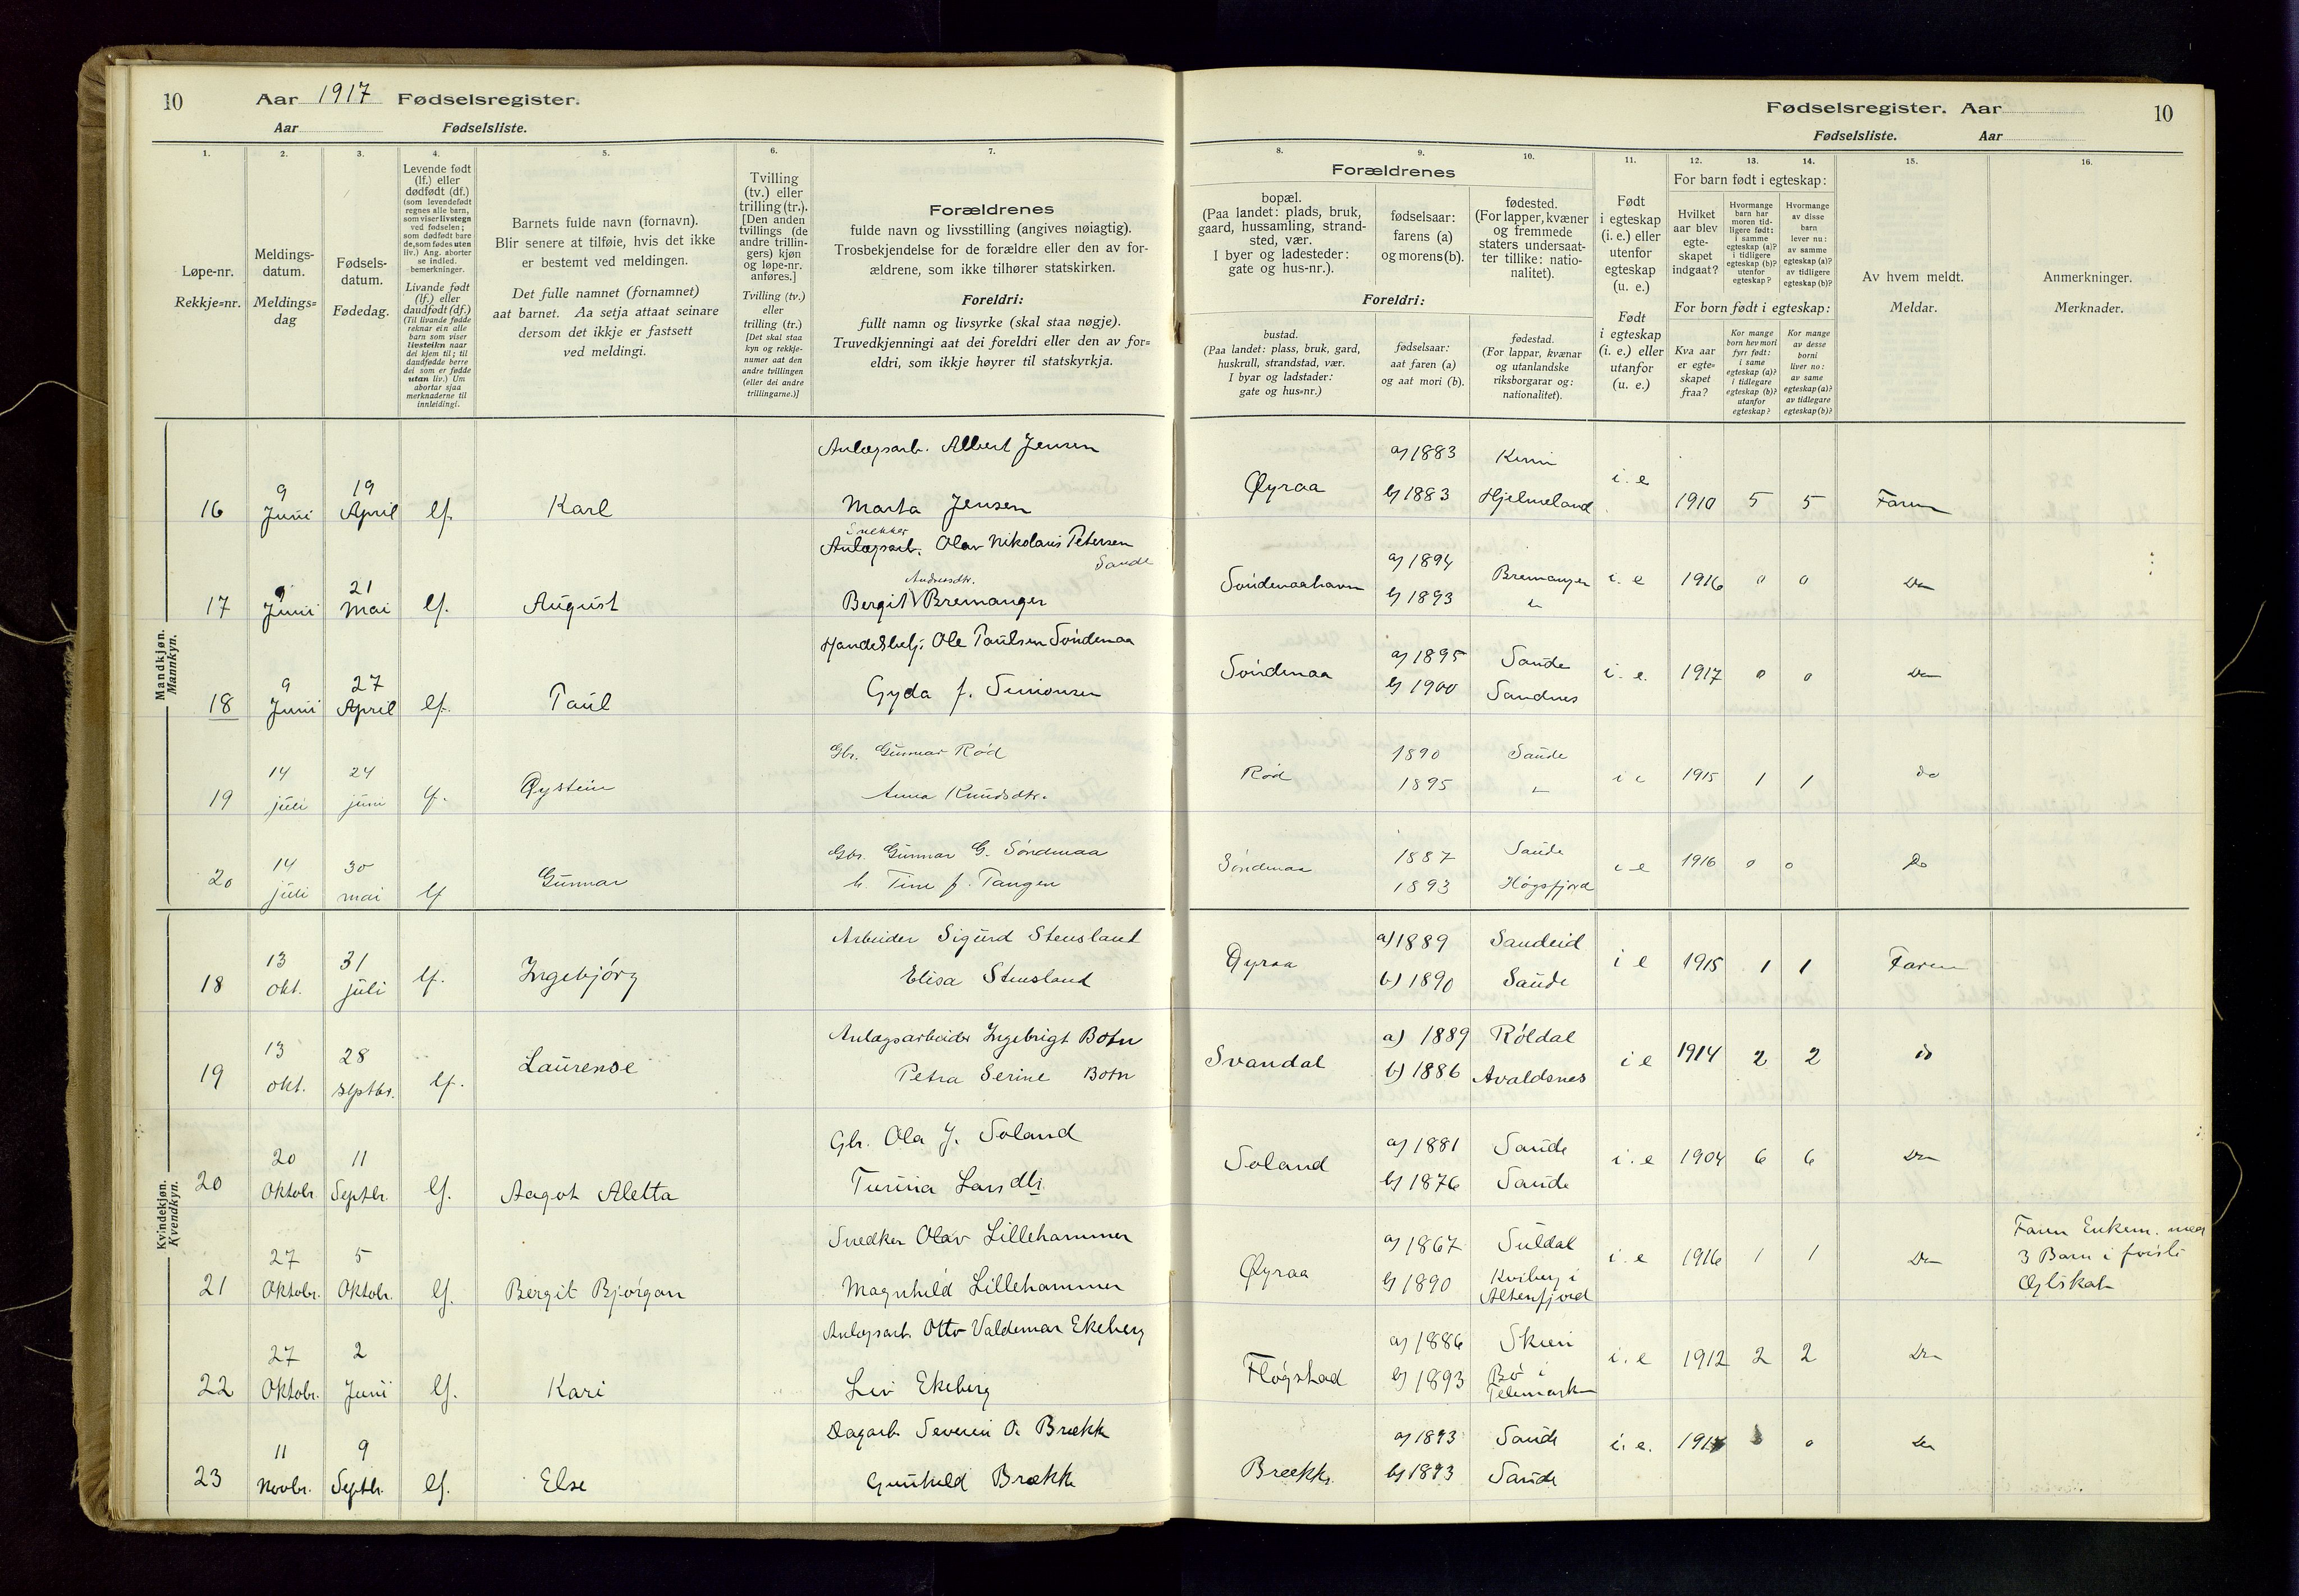 10 Aar 1917 Fødselsregister.
Aar Fødselsliste.
Fødselsregister. Aar 10
Fødselsliste. Aar
1. 2. 3. 4. 5. 6. 7. 8. 9. 10. 11. 12. 13. 14. 15. 16.
Løpe-nr.
Rekkje=nr.
Meldings-
datum.
Meldings=
dag
Fødsels-
datum.
Fødedag.
Levende født
(lf.) eller
dødfødt (df.)
(som levendefødt
regnes alle barn,
som viser livstegn
ved fødselen;
som dødfødt bare
de, som fødes uten
liv.) Ang. aborter
se indled.
bemerkninger.
Livande fødd
(lf.) eller
daudfødt (df.)
(Til livande fødde
reknar ein alle
barn som viser
livsteikn naar
dei kjem til; til
daudfødde berre
dei som er fødde
utan liv.) Um
abortar sjaa
merknaderne til
innleidingi.
Barnets fulde navn (fornavn).
Blir senere at tilføie, hvis det ikke
er bestemt ved meldingen.
Det fulle namnet (fornamnet)
aat barnet. Aa setja attaat seinare
dersom det ikkje er fastsett
ved meldingi.
Tvilling
(tv.) eller
trilling (tr.).
[Den anden
tvillings (de
andre trillin-
gers) kjøn
og løpe-nr.
anføres.]
Tvilling (tv.)
eller
trilling (tr.)
[Det skal staa
kyn og rekkje-
numer aat den
andre tvillingen
(eller dei andre
trillingarne.)]
Forældrenes
fulde navn og livsstilling (angives nøiagtig).
Trosbekjendelse for de forældre eller den av for-
ældrene, som ikke tilhører statskirken.
Foreldri:
fullt namn og livsyrke (skal staa nøgje).
Truvedkjenningi aat dei foreldri eller den av for=
eldri, som ikkje høyrer til statskyrkja.
Forældrenes
bopæl.
(Paa landet: plads, bruk,
gaard, hussamling, strand-
sted, vær.
I byer og ladesteder:
gate og hus-nr.).
fødselsaar:
farens (a)
og morens (b).
fødested.
(For lapper, kvæner
og fremmede
staters undersaat-
ter tillike: natio-
nalitet).
Foreldri:
bustad.
(Paa landet: plass, bruk, gard,
huskrull, strandstad, vær.
I byar og ladstader:
gate og hus=nr.)
fødselsaar:
aat faren (a)
og aat mori (b).
fødestad.
(For lappar, kvænar
og utanlandske
riksborgarar og:
nationalitet).
Født
i egteskap
(i. e.) eller
utenfor
egteskap
(u. e.)
Født
i egteskap
(i. e.) eller
utanfor
(u. e.)
For barn født i egteskap:
Hvilket
aar blev
egte-
skapet
indgaat?
Hvormange
barn har
moren tid-
ligere født:
i samme
egteskap (a)?
i tidligere
egteskap (b)?
utenfor
egteskap?
Hvormange
av disse
barn
lever nu:
av samme
egteskap (a)?
av tidligere
egteskap (b)?
For born født i egteskap:
Kva aar
er egte=
skapet
fraa?
Kor mange
born hev mori
fyrr født:
i same
egteskap (a)?
i tidlegare
egteskap (b)?
utanfor
egteskap?
Kor mange
av desse
borni
liver no:
av same
egteskap (a)?
av tidlegare
egteskap (b)?
Av hvem meldt.
Meldar.
Anmerkninger.
Merknader.
Mandkjøn.
Mannkyn.
Anlægsarb. Albert Jensen a) 1883
16 9 Juni 19 April lf. Karl Marta Jensen Øyraa b) 1883 Hjelmeland i. e 1910 5 5 Faren
Snekker
Anlægsarb. Olav Nikolaus Petersen Sande a) 1894 Bremanger
Andreasdtr.
17 9 Juni 21 Mai lf. August Bergit Bremanger Søndenaahavn b) 1893 i. e 1916 0 0 Do
Handelsbetj. Ole Paulsen Søndenaa a) 1895 Sande
18 9 Juni 27 April lf. Paul Gyda f. Simonsen Søndenaa b) 1900 Sandnes i. e. 1917 0 0 Do
Gbr. Gunnar Rød 1890 Sande
19 14 juli 24 juni lf. Øystein Anna Knudsdtr. Rød 1895 i e 1915 1 1 do
Gbr. Gunnar G. Søndenaa 1887 Sande
20 14 juli 30 mai lf Gunnar h. Tine f. Tangen Søndenaa 1893 Høgsfjord i e 1916 0 0 Do
Kvindekjøn.
Kvendkyn.
Arbeider Sigurd Stensland a) 1889 Sandeid
18 13 okt. 31 juli lf. Ingebjørg Elisa Stensland Øyraa b) 1890 Saude i e 1915 1 1 Faren
Anlægsarbeider Ingebrigt Botn a) 1889 Røldal
19 13 okt. 28 septbr. lf. Laurense Petra Serine Botn Svandal b) 1886 Avaldsnes i e 1914 2 2 do
Gbr. Ola J. Soland a) 1881 Saude
20 20 Oktobr. 11 Septbr. lf. Aagot Aletta Turina Larsdtr. Soland b) 1876 Saude i. e 1904 6 6 Do
Snedker Olav Lillehammer a) 1867 Suldal
21 27 Oktobr. 5 Oktobr. lf. Bergit Bjørgan Magnhild Lillehammer Øyraa b) 1890 Kviberg i Altenfjord i. e 1916 1 1 Do
Faren Enkem. med
3 Barn i første
Ægteskab
Anlægsarb. Otto Valdemar Ekeberg a) 1886 Skien
22 27 Oktobr. 2 Juni lf. Kari Liv Ekeberg Fløgstad b) 1893 Bø i Telemarken i. e 1912 2 2 Do
Dagarb. Severin O. Brække a) 1893 Saude
23 11 Novbr. 9 Septbr. lf. Else Gunhild Brække Brække b) 1893 Saude i. e. 1917 0 Do